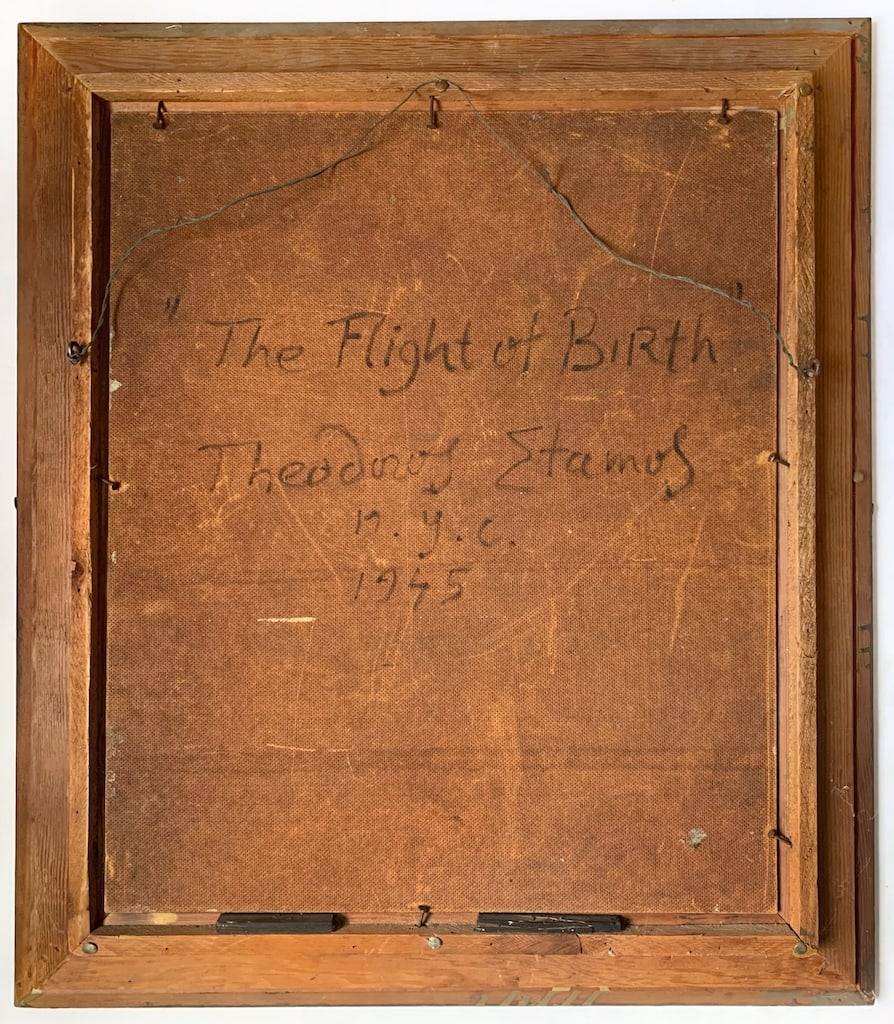 "The Flight of BIRth"
Theodoros Σtamos
n.y.c.
1945